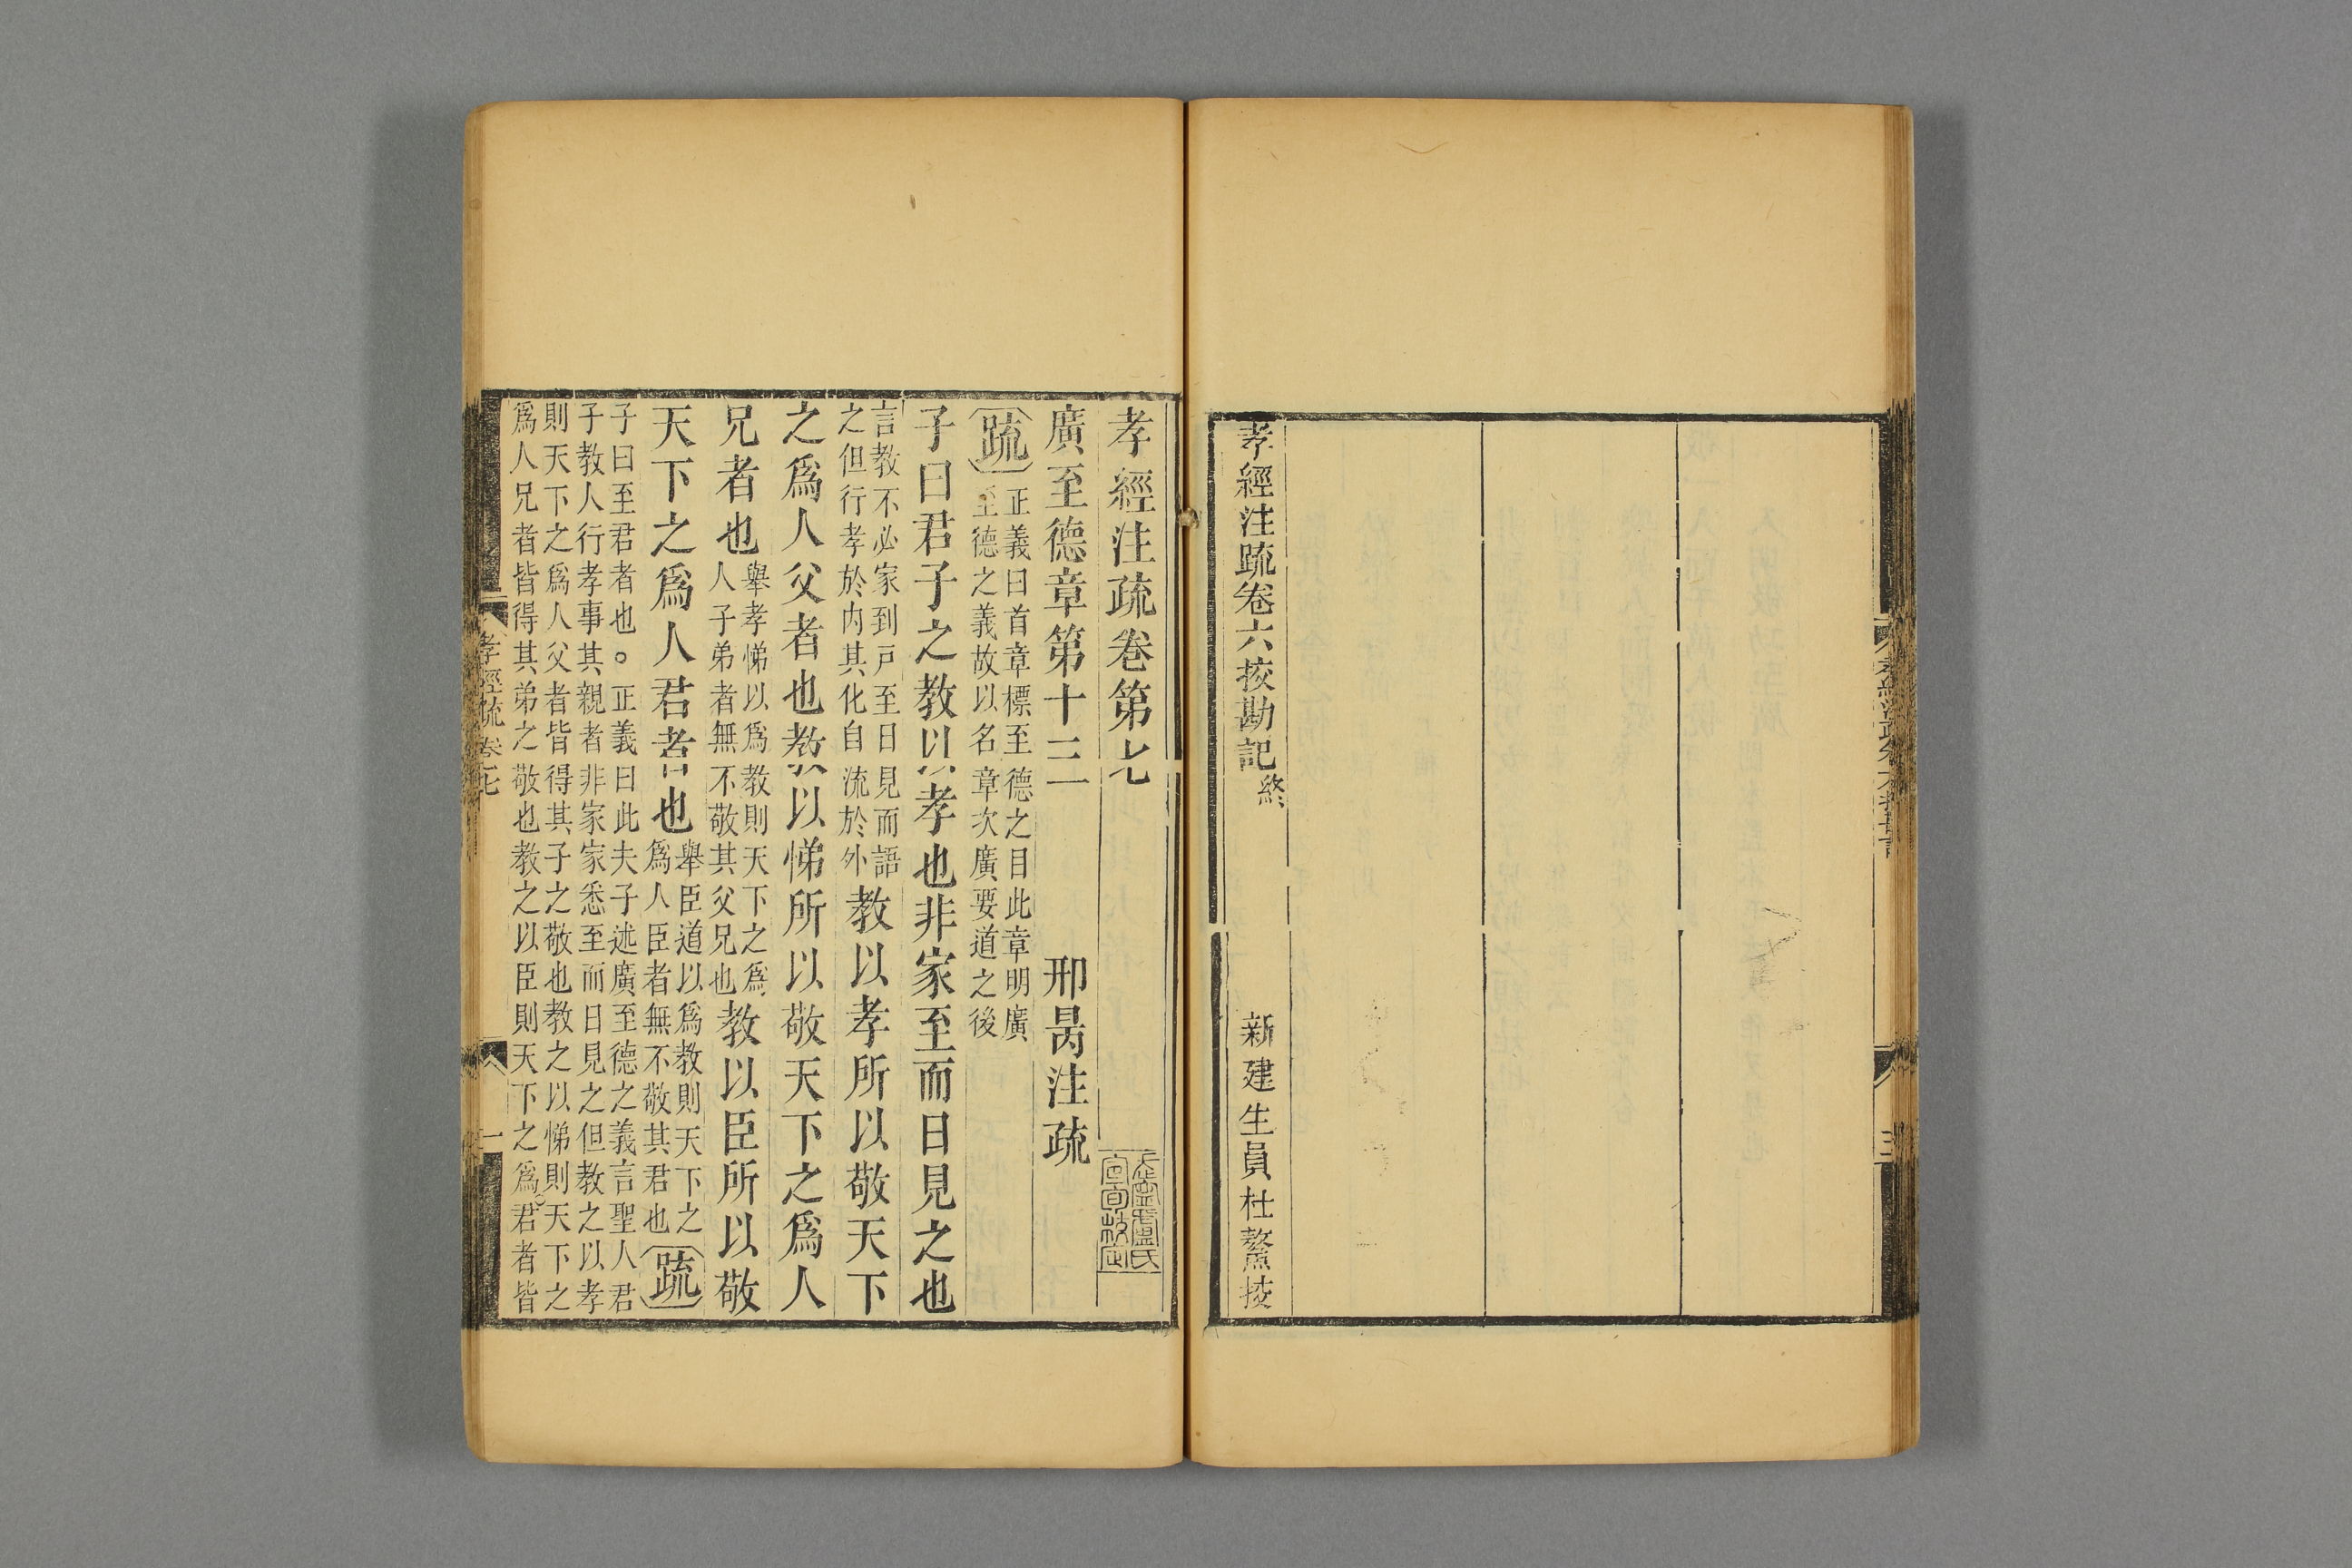 孝經注疏卷六挍勘記終
新建生員杜鰲挍
孝經注疏卷第七
廣至德章第十三
邢昺注疏
疏
正義曰首章標至德之目此章明廣
至德之義故以名章次廣要道之後
子曰君子之教以孝也非家至而日見之也
言教不必家到戸至日見而語
之但行孝於内其化自流於外
教以孝所以敬天下
之爲人父者也教以悌所以敬天下之爲人
兄者也
舉孝悌以爲教則天下之爲
人子弟者無不敬其父兄也
教以臣所以敬
天下之爲人君者也
舉臣道以爲教則天下之
爲人臣者無不敬其君也
疏
子曰至君者也。正義曰此夫子述廣至德之義言聖人君
子教人行孝事其親者非家家悉至而日見之但教之以孝
則天下之爲人父者皆得其子之敬也教之以悌則天下之
爲人兄者皆得其弟之敬也教之以臣則天下之爲君者皆
孝經疏卷七
一